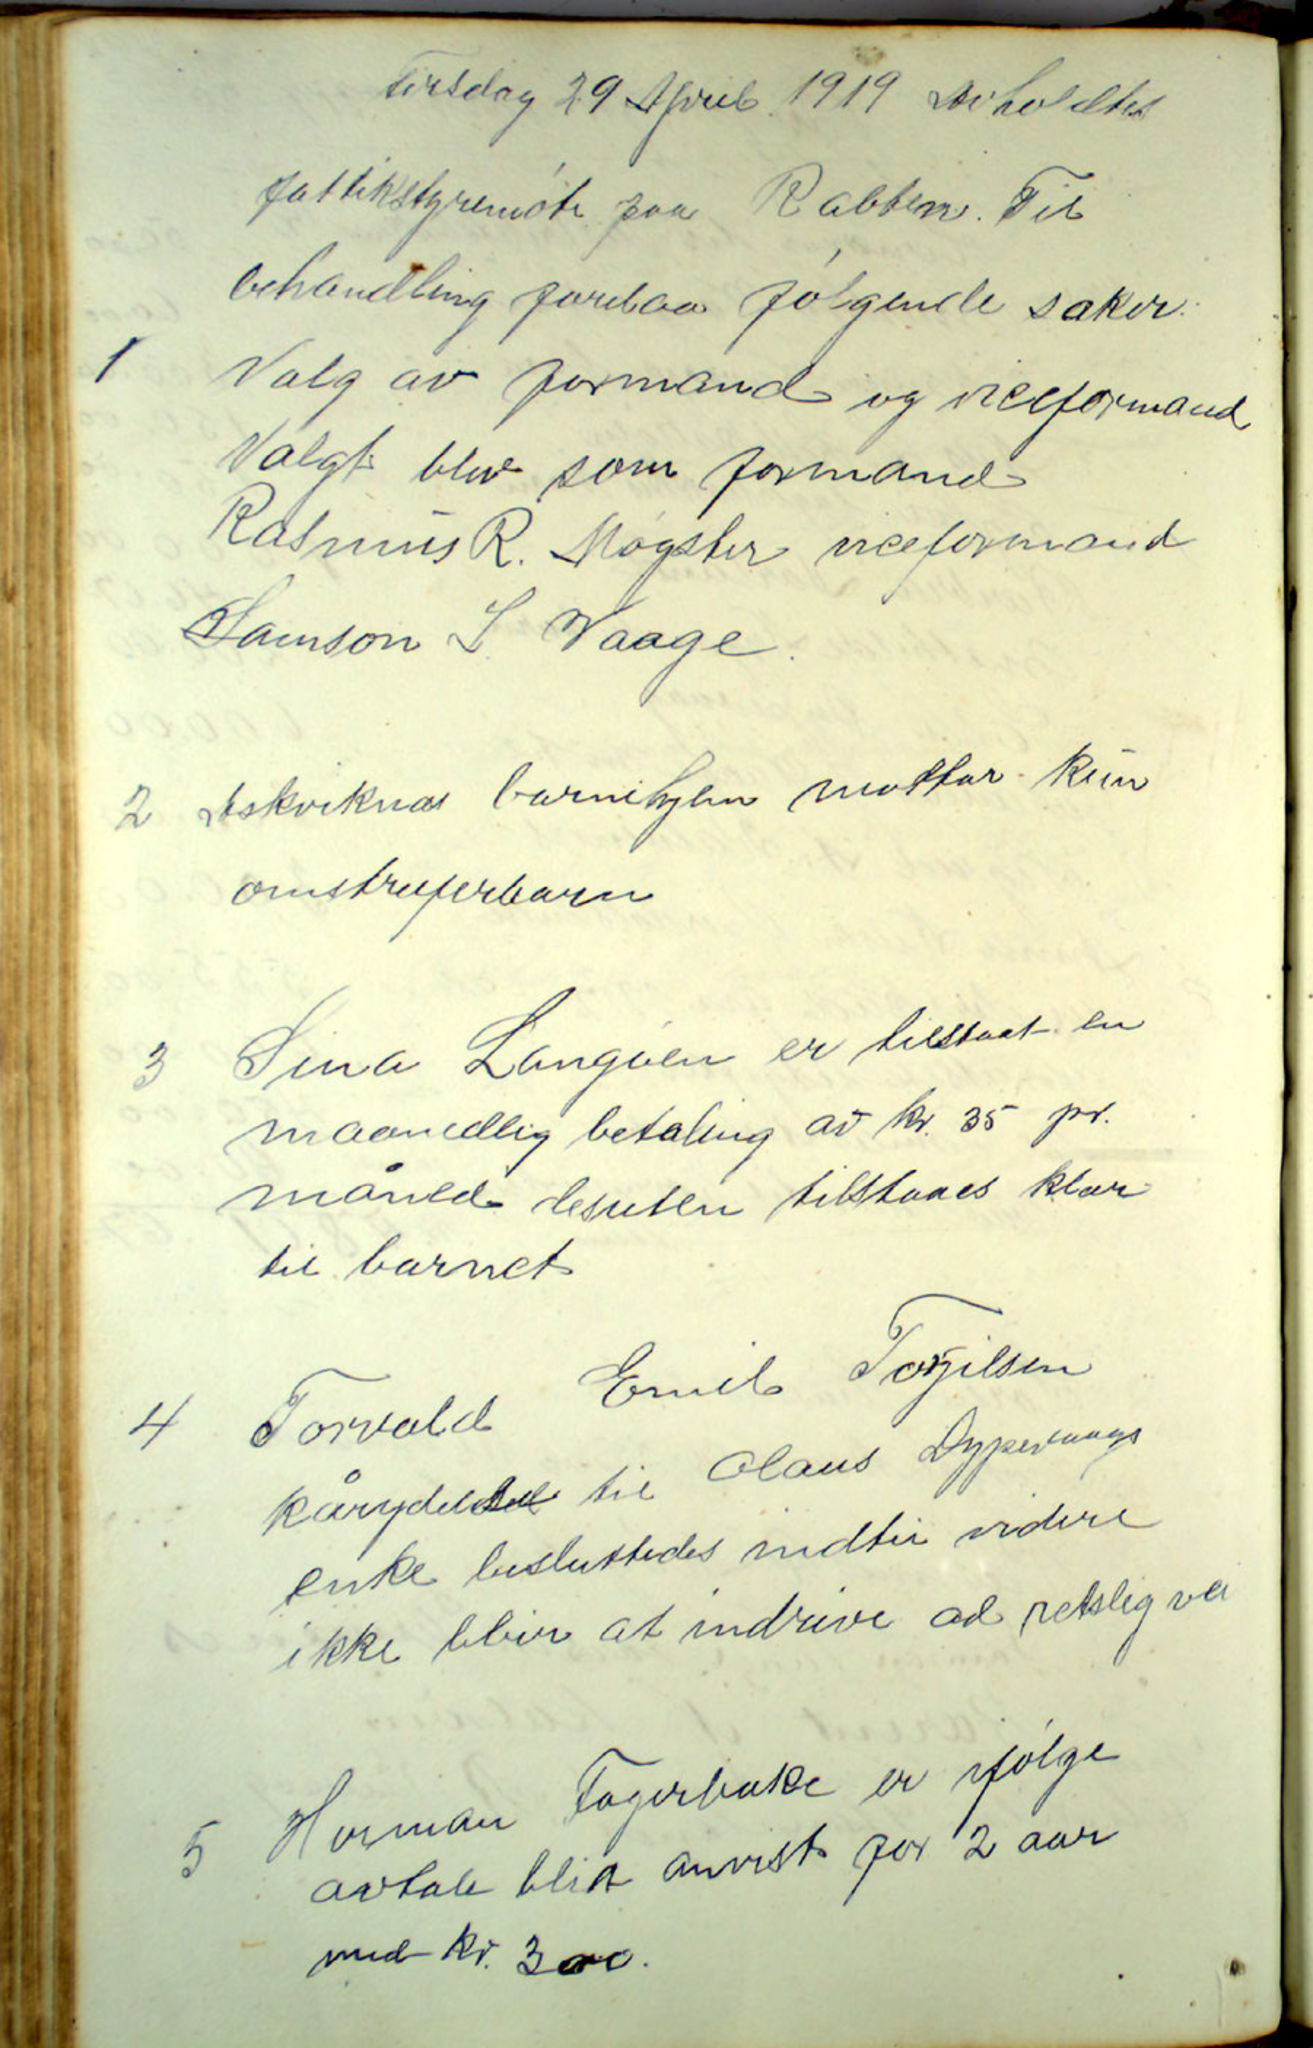 Tirsdag 29 April 1919 Avholdtes
fattikstyremöte paa Rabben. Til
behandling forelaa følgende saker.
1 Valg av formand og viceformand
Valgt blev som formand
Rasmus R. Møgster viceformand
Samson S. Vaage.
2 Askviknes barnehjem mottar kun
omstreiferbarn
3 Sina Langöen er tilstaat en
maanedlig betaling av kr. 35 pr.
måned desuten tilstaaes klær
til barnet
4 Torvald Emil Torjilsen
kårydelse til Olaus Dypevaags
enke besluttedes indtil videre
ikke blir at indrive ad retslig vei
5 Herman Fagerbakke er ifølge
avtale blit anvist for 2 aar
med kr. 300.